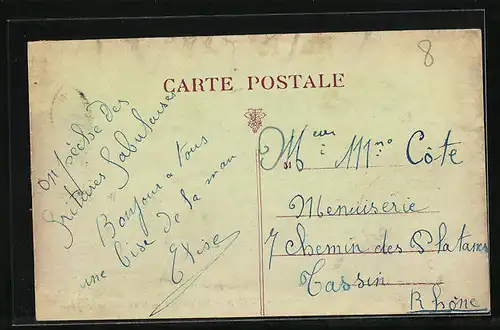 8
CARTE POSTALE
on pêche des
fritures fabuleuses
Bonjour a tous
une bise de la man
Elise
M eur Mme Côte
Menuiserie
7 chemin des Platanes
Tassin
Rhône